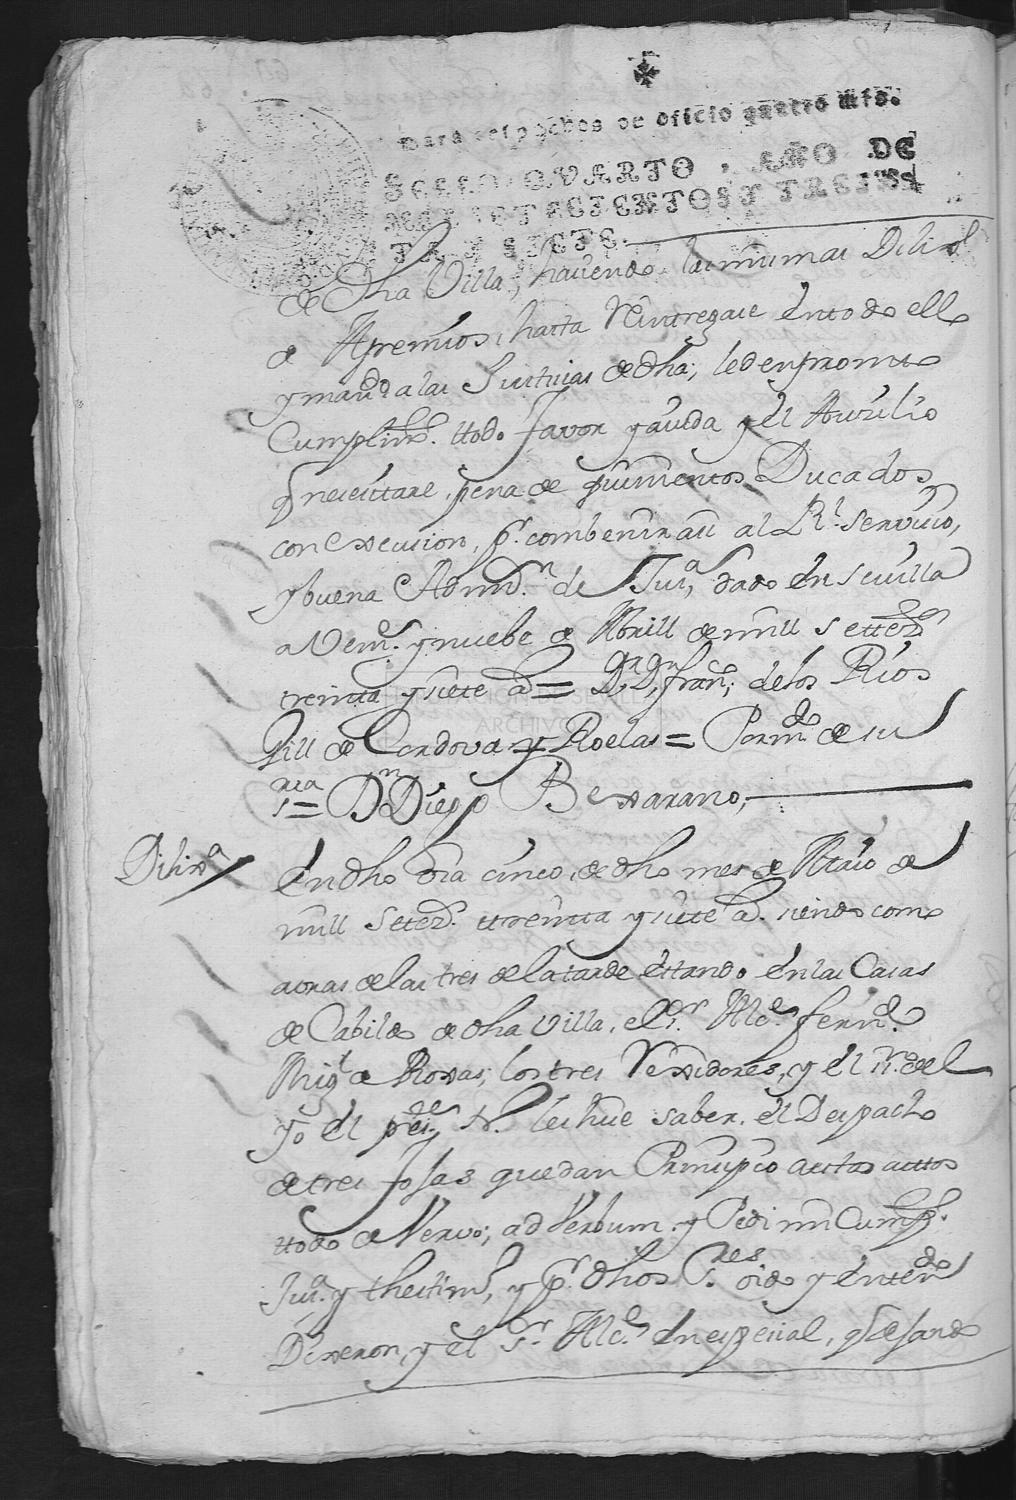 ✠
Para despachos de oficio quatro mrs.
SELLO QVARTO, AÑO DE
MIL SETECIENTOS Y TREIN-
TA Y SIETE.
de Dha Villa, haciendo las mismas Dilixs
de Apremios, hasta Reintregarse en todo ello
y mando a las Justicias de dha; le den prompto
Cumplimto. ttodo favor y aiuda y el Auxilio
q nesesittare, pena de quinientos Ducados
con Execusion, pr. combenir assi al Rl. servicio,
y buena Admon. de Jusa, dado en Sevilla
a Veintte. y nuebe de Abrill de mill settezs
treinta y siete as = Dr. Dn. Franco; de los Rios
Gill de Cordova y Roelas = Por mdo de su
sria = Dn Diego Bexarano,
Dilixa / En dho dia cinco, de dho mes de Maio de
mill Setezs. ttreintta y siete as. siendo como
a oras de las tres de la tarde Esttando En las Casas
de Cabildo de dha Villa, el Sr. Alcde fernado
Migl de Roxas, los tres Rexidores, y el sr. del
yo el preste. Sno. les hise saber, el Despacho
de tres fojas que dan Prinsipio a estos auttos
ttodo de Vervo; ad Verbum y Pedi mi Cumplimto.
Jusa. y thestimo, y pr. dhos Sres. oido y Entendo
Dixeron, y el Sr. Alcde En espesial, q desando